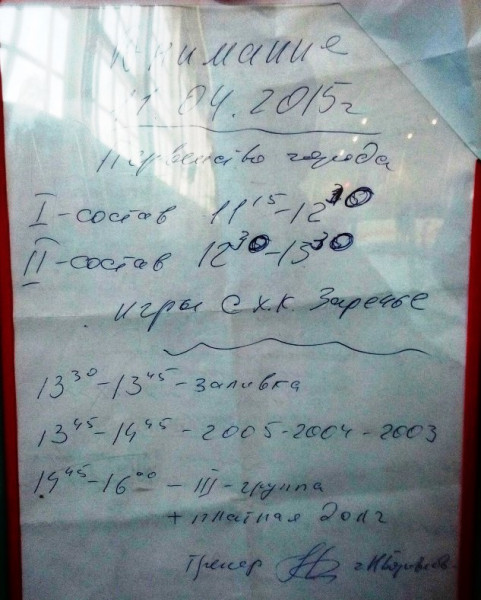 Внимание
11.04.2015г
первенство города
I-состав 11¹⁵-12³⁰
II-состав 12³⁰-13³⁰
игры с х.к. Заречье
13³⁰-13⁴⁵-заливка
13⁴⁵-14⁴⁵-2005-2004-2003
14⁴⁵-16⁰⁰-III-группа
+ платная 2011г
тренер